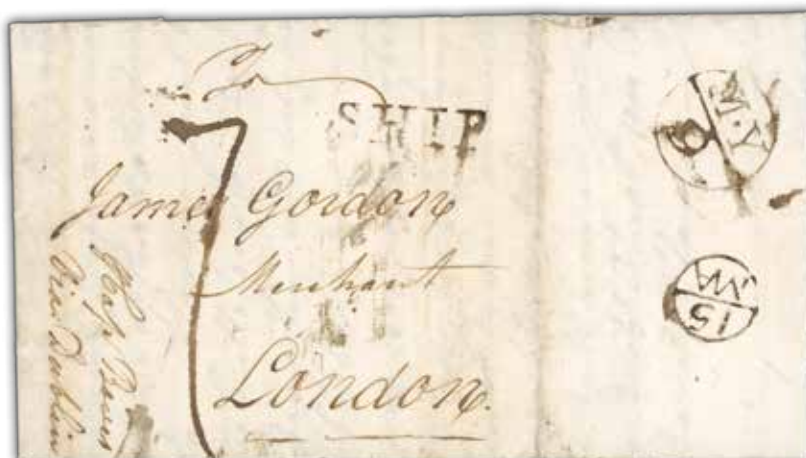 To
SHIP
7
James Gordon
Merchant
London.
Ship
Via Dublin
M·Y
9
15
MA